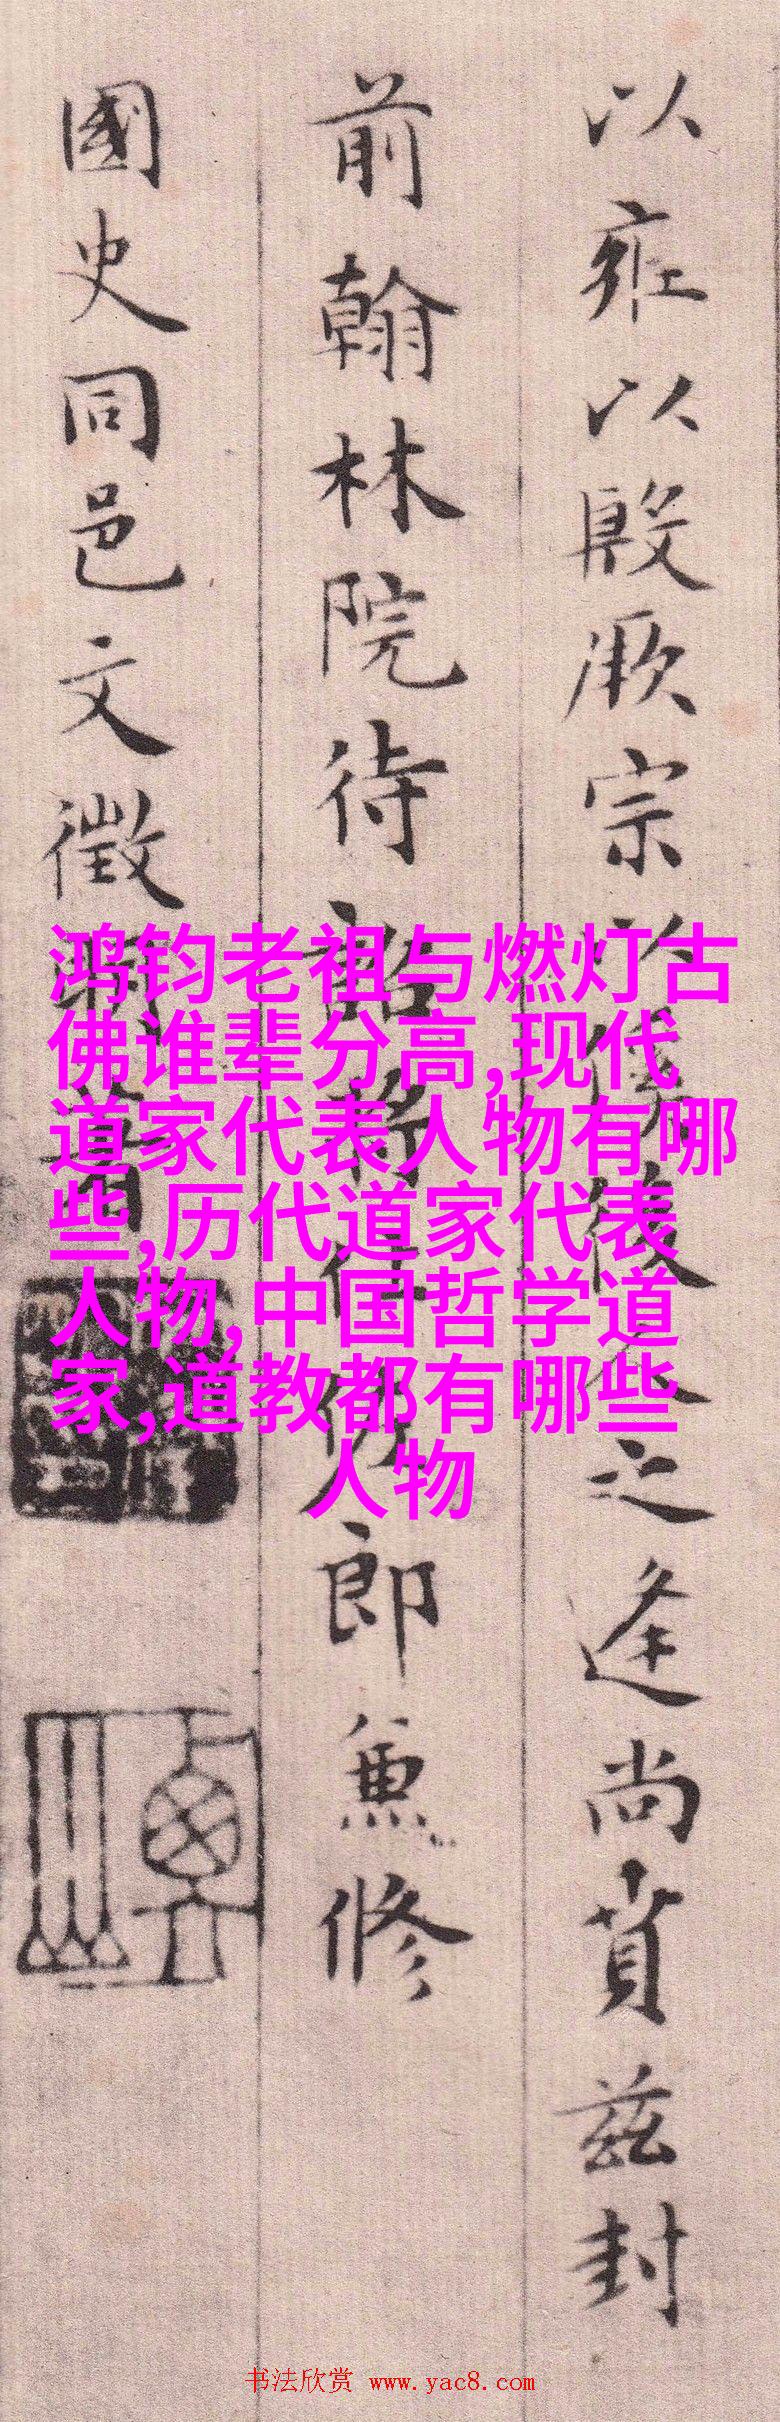 以雍以殷厥宗以
之逢尚賁兹封
前翰林院待詔將仕佐郎兼修
國史同邑文徵明書
鸿钧老祖与燃灯古
佛谁辈分高,现代
道家代表人物有哪
些,历代道家代表
人物,中国哲学道
家,道教都有哪些
人物
书法欣赏 www.yac8.com